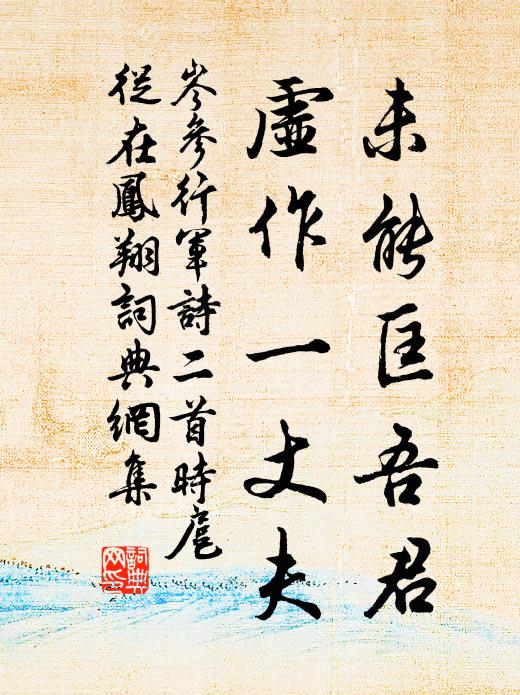 未能匡吾君
虛作一丈夫
岑參行軍詩二首時扈
從在鳳翔詞典網集
詞典网